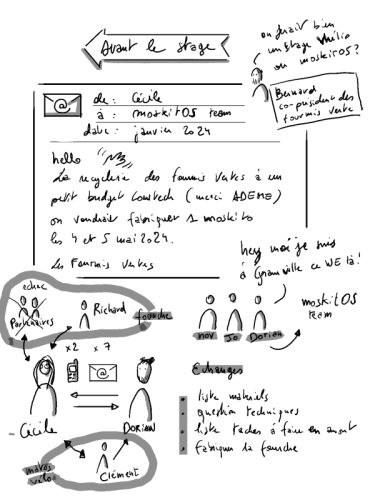 Avant le stage
on ferait bien
un stage Vhélio
ou moskitOS?
Bernard
co-président des
fourmis vertes
de : Cécile
à : moskitOS team
date : janvier 2024
hello
La recyclerie des fourmis vertes a un
petit budget Lowtech (merci ADEME)
on voudrait fabriquer 1 moskito
les 4 et 5 mai 2024.
Les Fourmis Vertes
hey moi je suis
à Granville ce WE là!
Partenaires
Richard
fourche
x2 x7
nov Jo Dorian
moskitOS
team
Cécile
DORIAN
Clément
vélo
Echanges
liste matériels
question techniques
liste taches à faire en amont
fabriquer la fourche